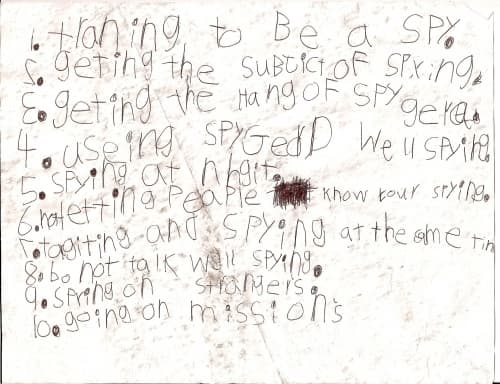 1. traning to Be a SPY.
2. geting the SuBtict OF SPxing.
3. geting the Hang OF SPY gera.
4. useing SPYGerD Well SPying.
5. SPying at nhgit.
6. not letting PeaPle know your spying.
7. tagiting and SPying at the came tim
8. Do not talk well SPying.
9. Spying on strangers.
10. going on missions